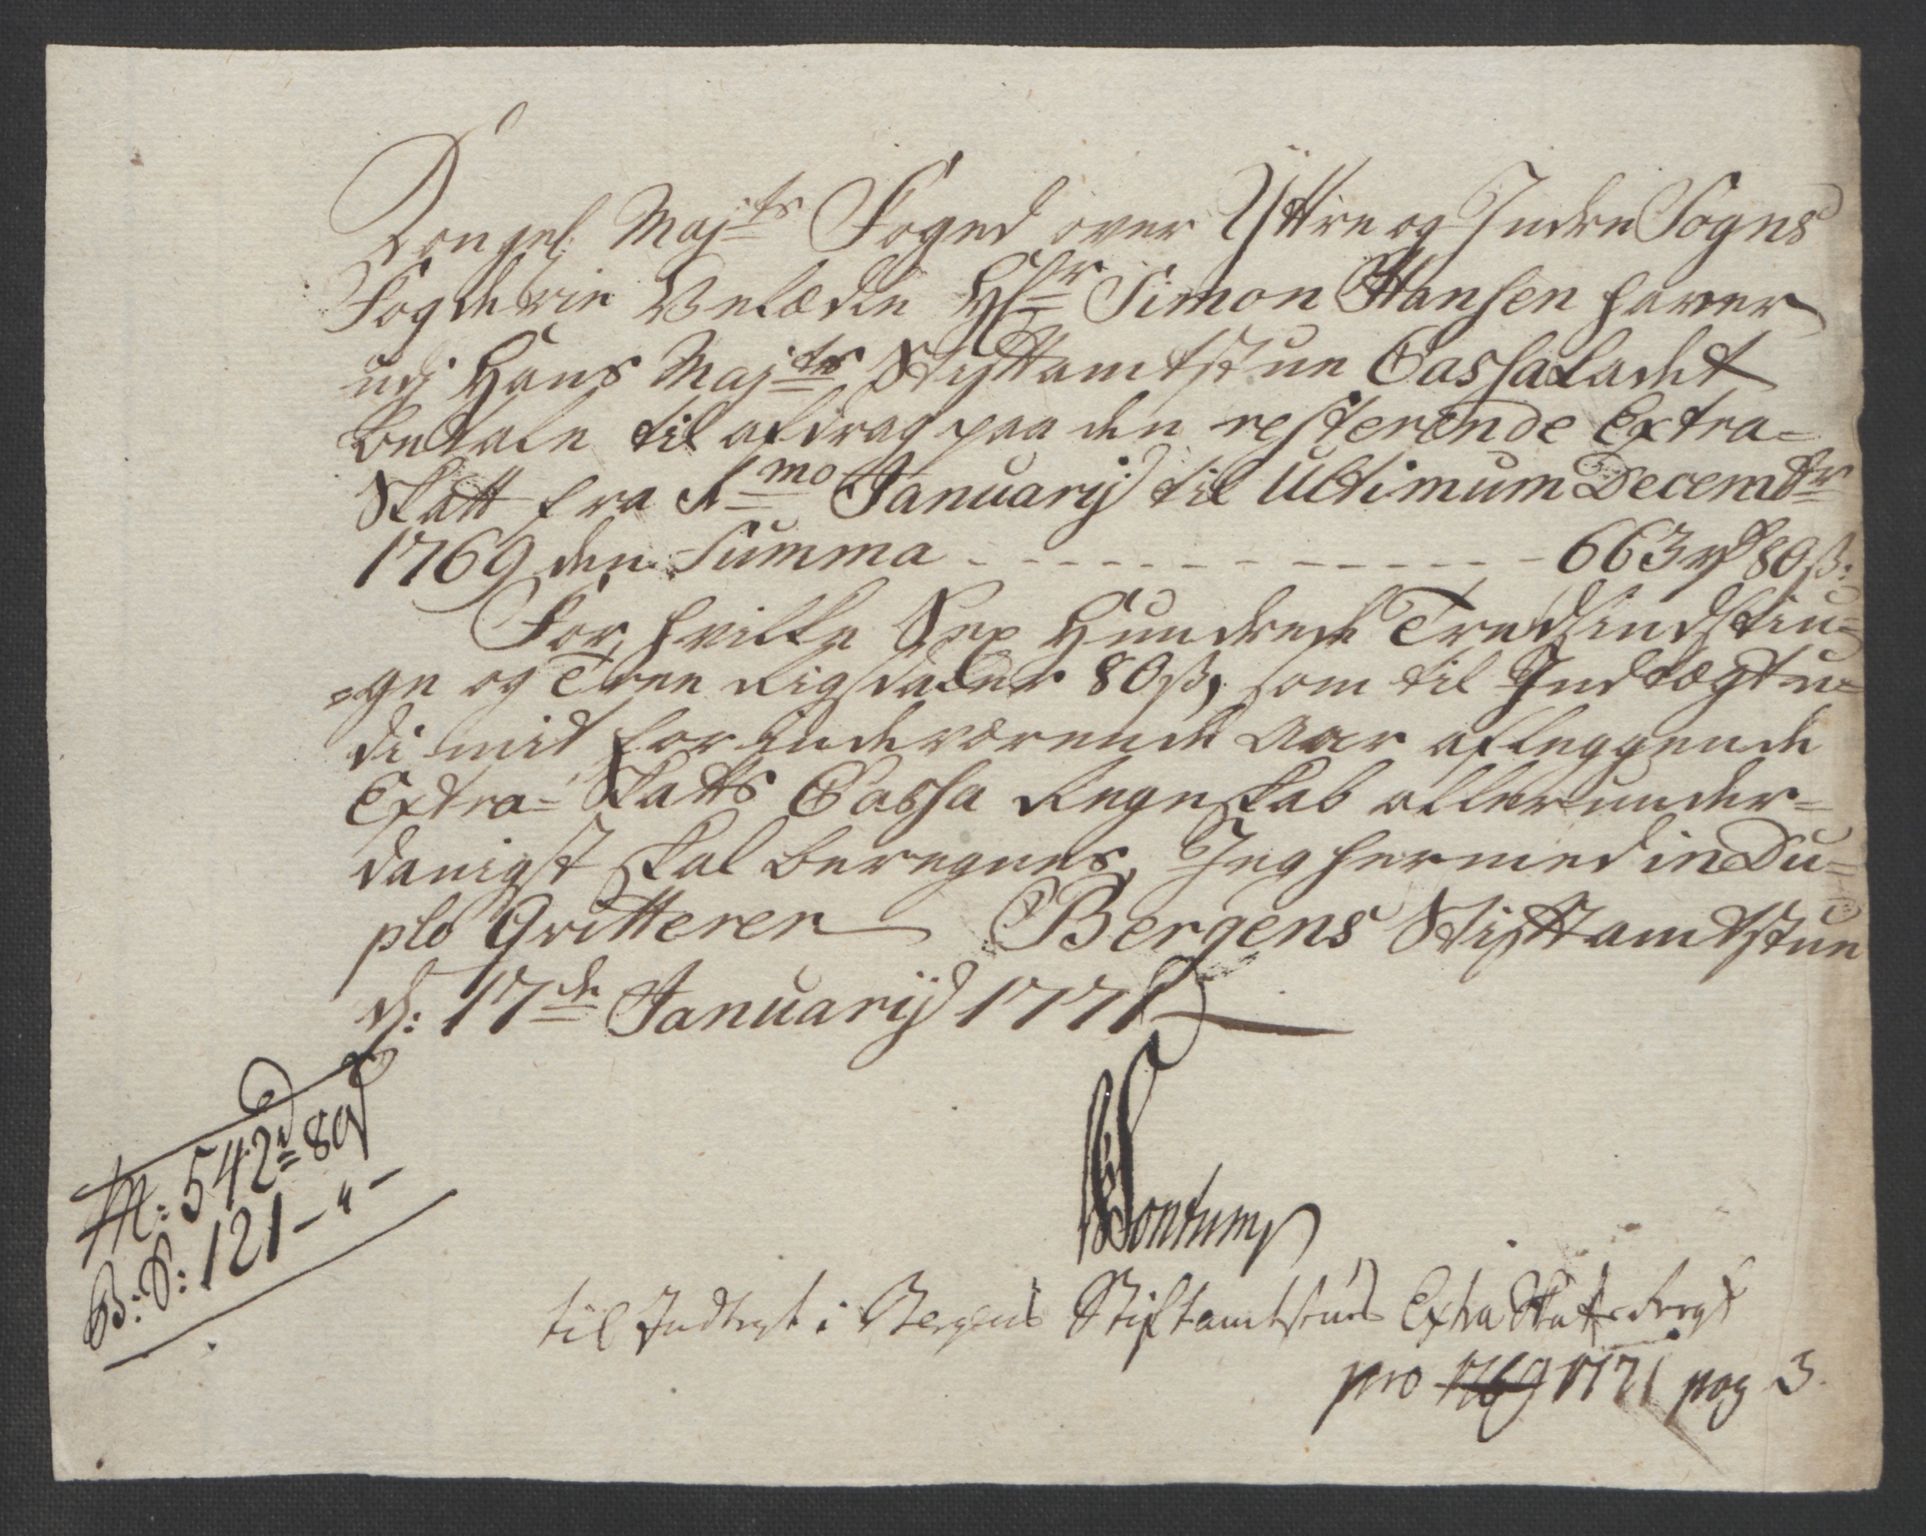 Kongel: Majts Foged over Yttre og Indre Sogns
Fogderie Velædle Hr Simon Hansen haver
udj Hans Majts Stiftamtstue Cassa Ladet
betale til afdrag paa den resterende Extra=
Skatt fra 1mo Januarij til Ultimum Decembr
1769 den Summa - - - - - - - - - - - - 663 rd 80 ß:
For hvilke Sex Hundrede Tredsindstiu=
=ge og Tree Rigsdaler 80 ß, som til Indtægt u=
di mit for indeværende Aar aflæggende
Extra= Skatts Cassa Regnskab allerunder=
danigst skal beregnes, Jeg hermed in Du=
plo Qvitterer Bergens Stiftamtstue
d: 17de Januarij 1771
M: 542 rd 80 ß
B: S: 121 - " -
til Indtegt i Bergens Stiftamtstues Extra Skatts
pro 1769 1771 pag 3.